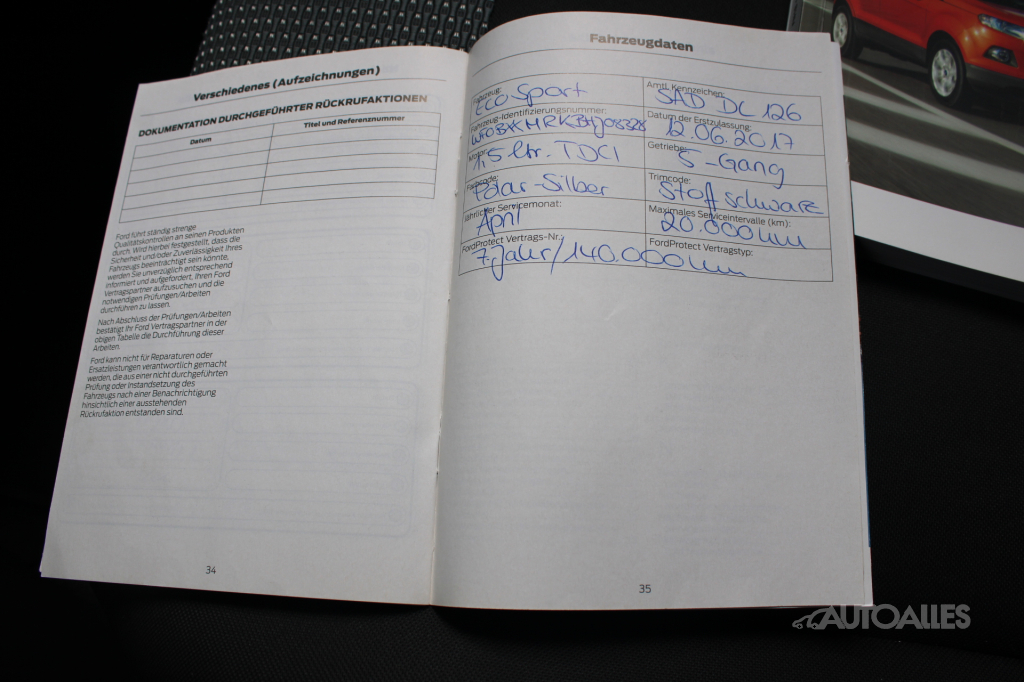 Verschiedenes (Aufzeichnungen)
DOKUMENTATION DURCHGEFÜHRTER RÜCKRUFAKTIONEN
Datum
Titel und Referenznummer
Ford führt ständig strenge
Qualitätskontrollen an seinen Produkten
durch. Wird hierbei festgestellt, dass die
Sicherheit und/oder Zuverlässigkeit Ihres
Fahrzeugs beeinträchtigt sein könnte,
werden Sie unverzüglich entsprechend
informiert und aufgefordert, Ihren Ford
Vertragspartner aufzusuchen und die
notwendigen Prüfungen/Arbeiten
durchführen zu lassen.
Nach Abschluss der Prüfungen/Arbeiten
bestätigt Ihr Ford Vertragspartner in der
obigen Tabelle die Durchführung dieser
Arbeiten.
Ford kann nicht für Reparaturen oder
Ersatzleistungen verantwortlich gemacht
werden, die aus einer nicht durchgeführten
Prüfung oder Instandsetzung des
Fahrzeugs nach einer Benachrichtigung
hinsichtlich einer ausstehenden
Rückrufaktion entstanden sind.
34
Fahrzeugdaten
Fahrzeug:
Eco Sport
Amtl. Kennzeichen:
SAD DC 126
Fahrzeug-Identifizierungsnummer:
Datum der Erstzulassung:
12.06.2017
Motor:
1,5 ltr. TDCI
Getriebe:
5-Gang
Farbcode:
Polar-Silber
Trimcode:
Stoff schwarz
Jährlicher Servicemonat:
April
Maximales Serviceintervalle (km):
20.000 km
FordProtect Vertrags-Nr.:
7. Jahr/140.000 km
FordProtect Vertragstyp:
35
AUTOALLES